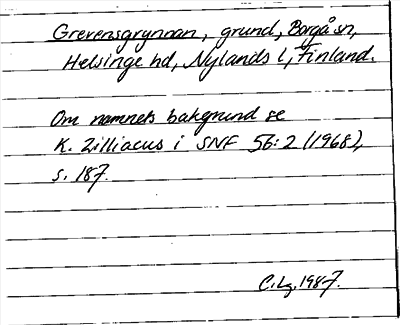 Grevensgrynnan, grund, Borgå sn,
Helsinge hd, Nylands l, Finland.
Om namnets bakgrund se
K. Zilliacus i SNF 56:2 (1968),
s. 187.
C. Lg. 1987.